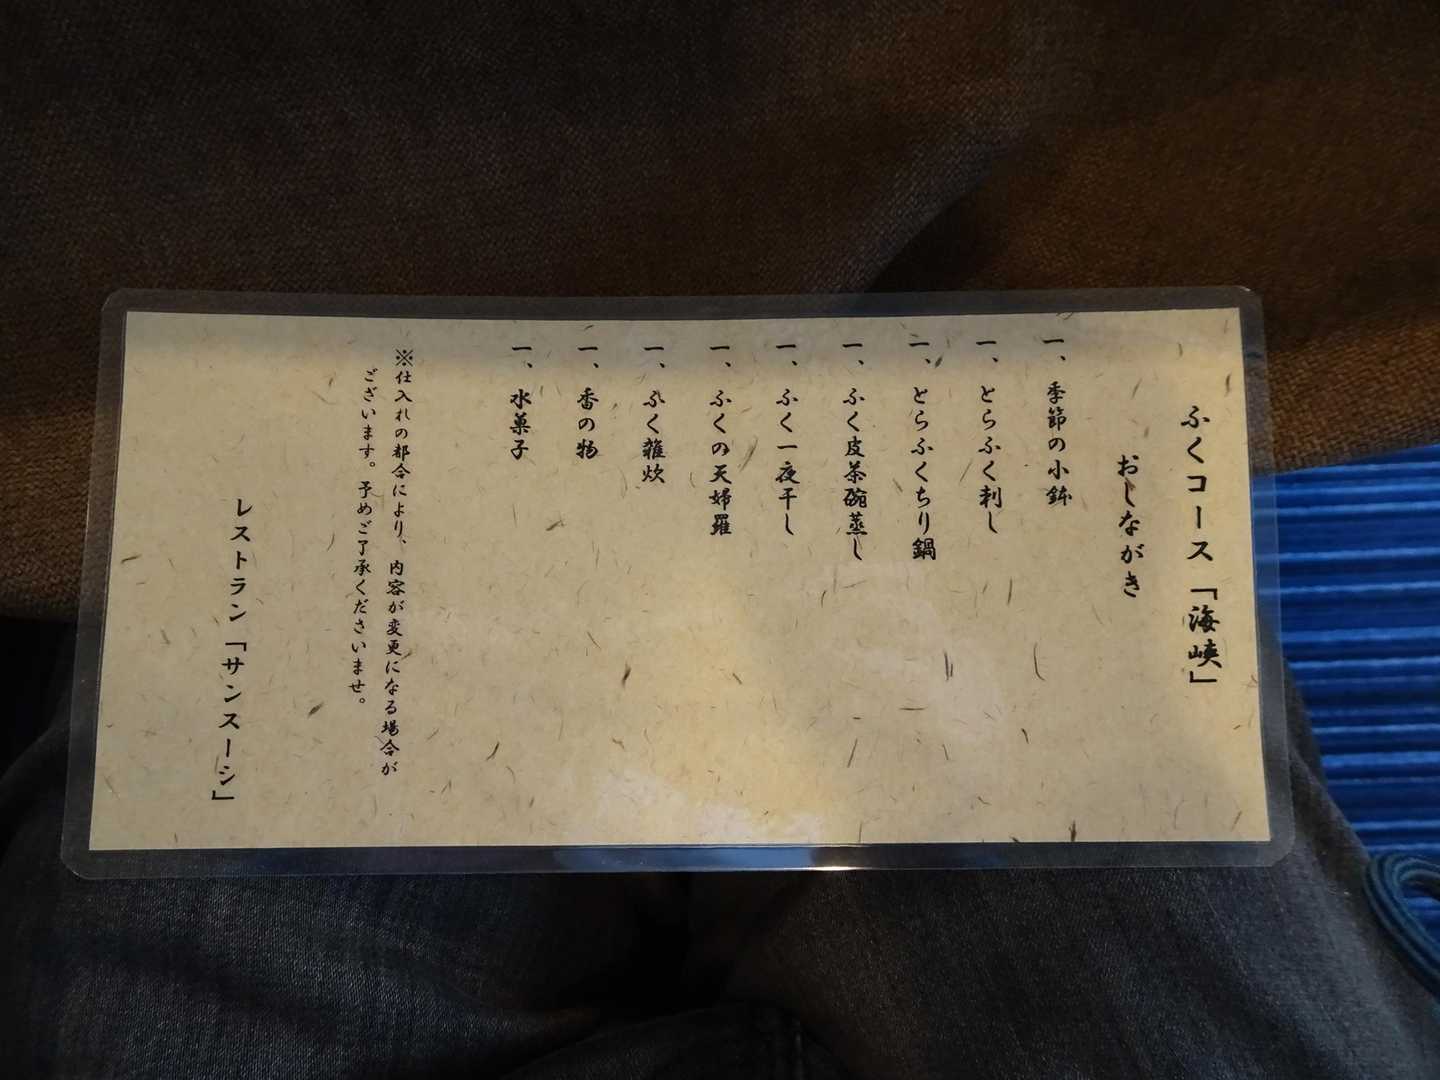 ふくコース「海峡」
おしながき
一、季節の小鉢
一、とらふく刺し
一、とらふくちり鍋
一、ふく皮茶碗蒸し
一、ふく一夜干し
一、ふくの天婦羅
一、ふく雑炊
一、香の物
一、水菓子
※仕入れの都合により、内容が変更になる場合が
ございます。予めご了承くださいませ。
レストラン「サンスーシ」